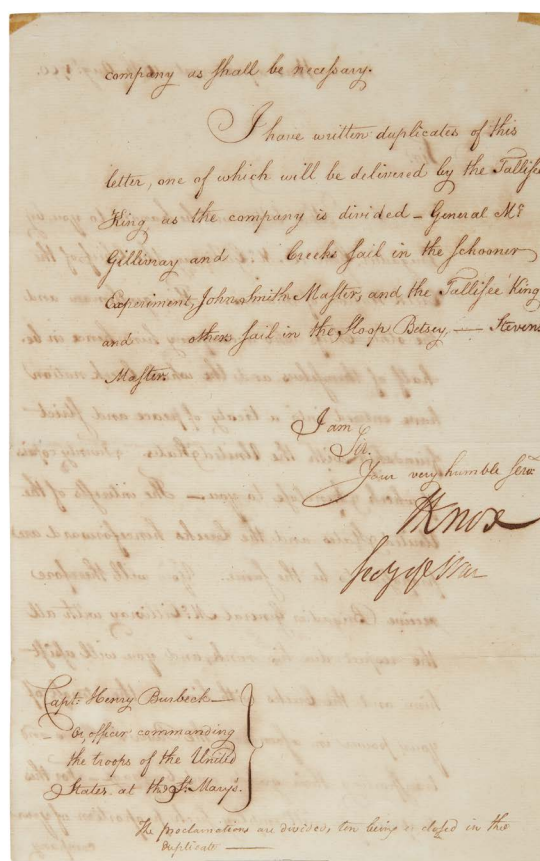 company as shall be necessary.
I have written duplicates of this
letter, one of which will be delivered by the Tallisee
King as the company is divided — General Mc
Gillivray and Creeks sail in the schooner
Experiment, John Smith Master, and the Tallisee King
and others sail in the Sloop Betsey, — Stevens
Master.
I am
Sir.
Your very humble Servt
HKnox
Secy of War
Capt. Henry Burbeck —
or, officer commanding
the troops of the United
States. at the St. Mary's.
The proclamations are divided, ten being enclosed in the
duplicate —